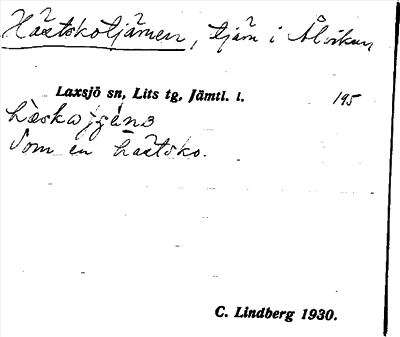 Hästskotjärnen, tjärn i Ålviken
Laxsjö sn, Lits tg, Jämtl. l. 195
hèskojgáns
Som en hästsko.
C. Lindberg 1930.